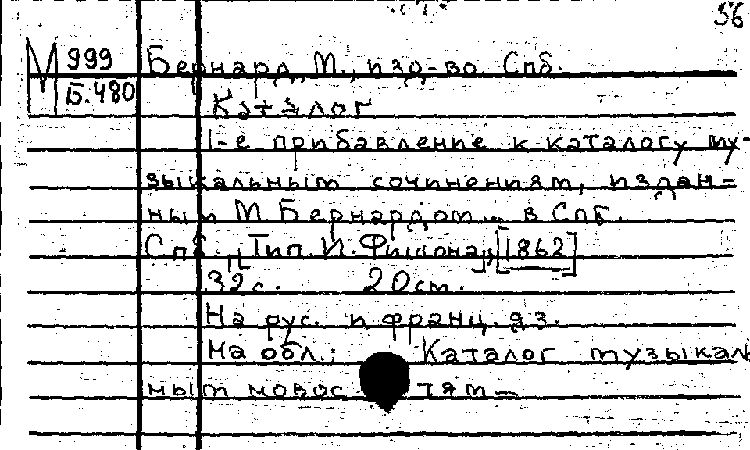 56
М 999
Б.480
Бернард, М., изд-во. Спб.
Каталог
1-е прибавление к каталогу му-
зыкальным сочинениям, издан-
ным М. Бернардом в Спб.
Спб., Тип. И. Фишона, [1862]
32с. 20см.
На рус. и франц. яз.
На обл.: Каталог музыкаль
ным новостям